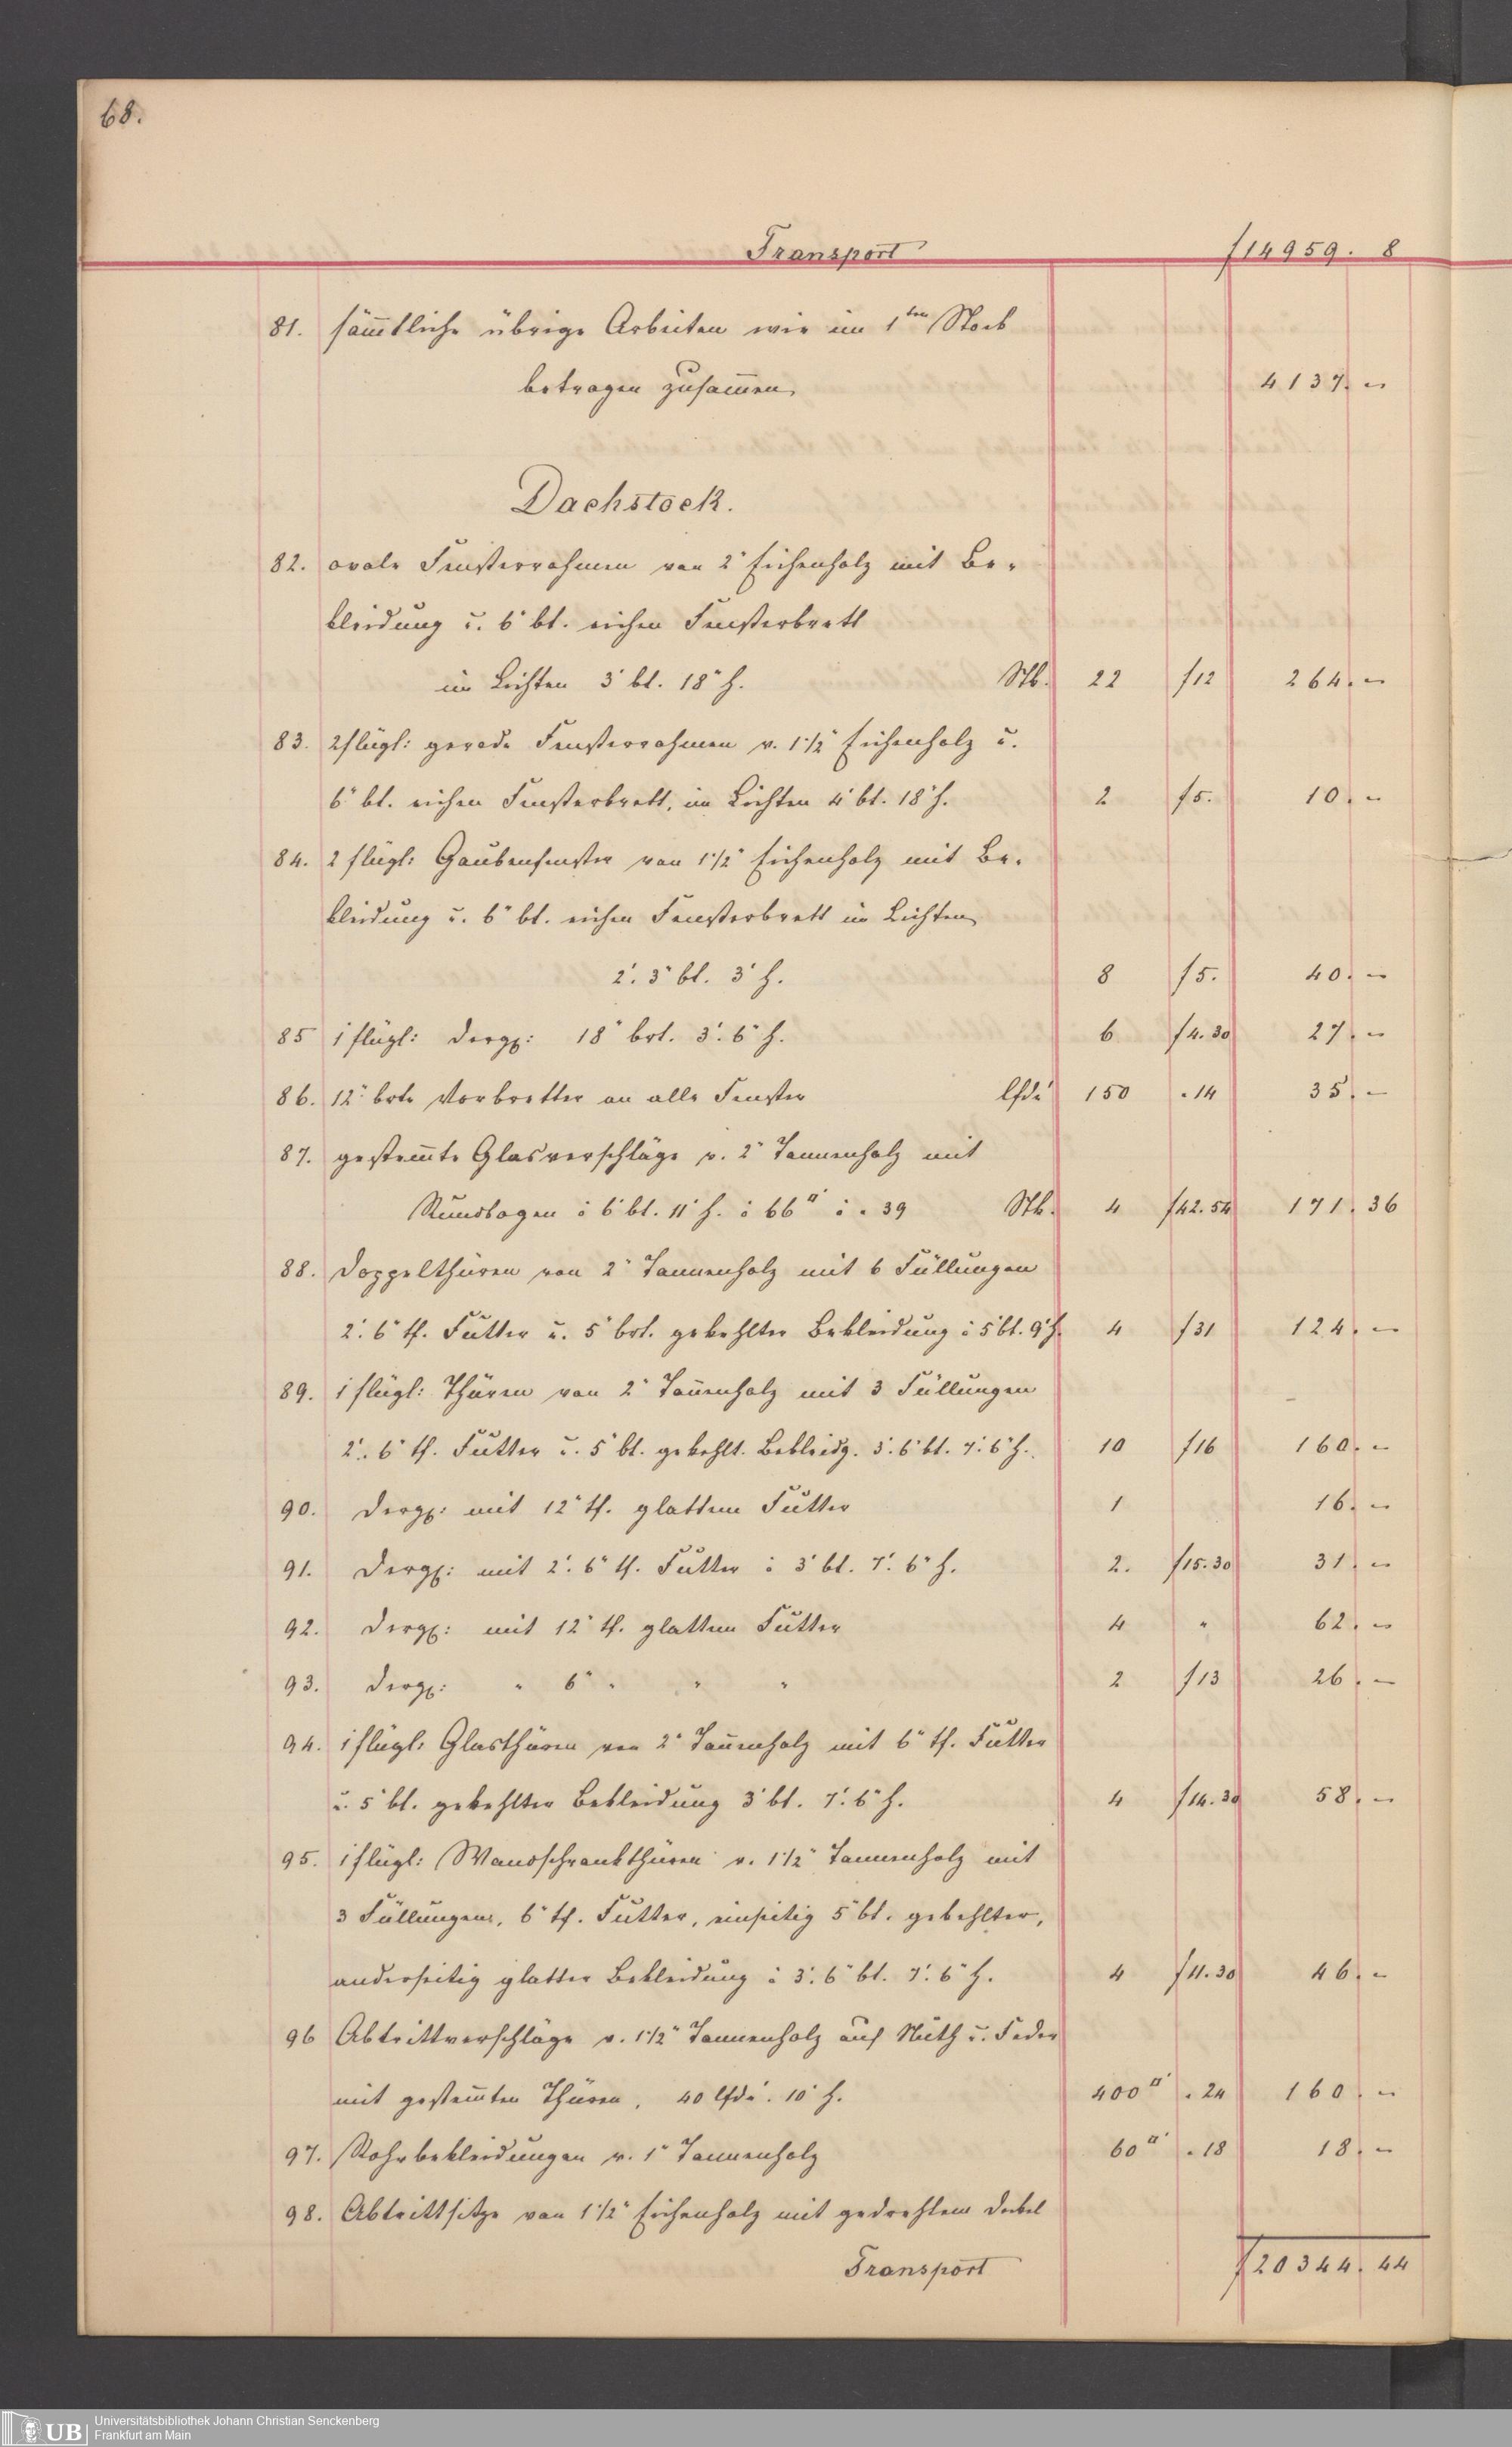 68.
Transport f 14959. 8
81. sämtliche übrige Arbeiten wie im 1ten Stock
betragen zusammen 4137. „
Dachstock.
82. ovale Fensterrahmen von 2" Eichenholz mit Be-
kleidung u. 6" bt. eichen Fensterbrett
im Lichten 3' bt. 18" h. Stk. 22 f 12 264. „
83. 2flügl: gerade Fensterrahmen v. 1 1/2" Eichenholz u.
6" bt. eichen Fensterbrett, im Lichten 4' bt. 18" h. 2 f 5. 10. „
84. 2 flügl: Gaubenfenster von 1 1/2" Eichenholz mit Be-
kleidung u. 6" bt. eichen Fensterbrett im Lichten
2'. 3" bt. 3' h. 8 f 5. 40. „
85 1 flügl: dergl: 18" brt. 3'. 6" h. 6 f 4. 30 27. „
86. 12" brte Vorbretter an alle Fenster lfde' 150 „ 14 35. „
87. gestemmte Glasverschläge v. 2" Tannenholz mit
Rundbogen à 6' bt. 11' h. à 66 □' à „ 39 Stk. 4 f 42. 54 171. 36
88. Doppelthüren von 2" Tannenholz mit 6 Füllungen
2'. 6" tf. Futter u. 5" brt. gekehlter Bekleidung à 5' bt. 9' h. 4 f 31 124. „
89. 1 flügl: Thüren von 2" Tannenholz mit 3 Füllungen
2'. 6" tf. Futter u. 5" bt. gekehlt. Bekleidg. 3'. 6" bt. 7'. 6" h. 10 f 16 160. „
90. dergl: mit 12" tf. glattem Futter 1 16. „
91. dergl: mit 2'. 6" tf. Futter à 3' bt. 7'. 6" h. 2. f 15. 30 31. „
92. dergl: mit 12" tf. glattem Futter 4 „ 62. „
93. dergl: „ 6" „ „ „ 2 f 13 26. „
94. 1 flügl: Glasthüren von 2" Tannenholz mit 6" tf. Futter
u. 5" bt. gekehlter Bekleidung 3' bt. 7'. 6" h. 4 f 14. 30 58. „
95. 1 flügl: Wandschrankthüren v. 1 1/2" Tannenholz mit
3 Füllungen, 6" tf. Futter, einseitig 5" bt. gekehlter,
anderseitig glatter Bekleidung à 3'. 6" bt. 7'. 6" h. 4 f 11. 30 46. „
96 Abtrittverschläge v. 1 1/2" Tannenholz auf Nuth u. Feder
mit gestemmten Thüren, 40 lfde'. 10' h. 400 □' „ 24 160. „
97. Rohrbekleidungen v. 1" Tannenholz 60 □' „ 18 18. „
98. Abtrittsitze von 1 1/2" Eichenholz mit gedrehtem Deckel
Transport f 20344. 44
UB Universitätsbibliothek Johann Christian Senckenberg
Frankfurt am Main